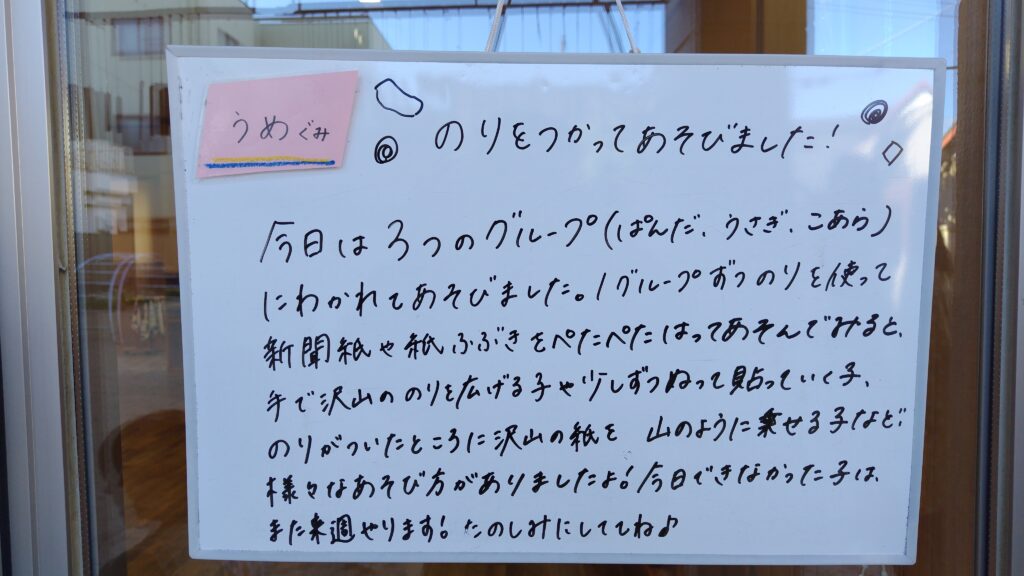 うめぐみ
のりをつかってあそびました！
今日は3つのグループ(ぱんだ、うさぎ、こあら)
にわかれてあそびました。1グループずつのりを使って
新聞紙や紙ふぶきをぺたぺたはってあそんでみると、
手で沢山ののりを広げる子や少しずつぬって貼っていく子、
のりがついたところに沢山の紙を 山のように乗せる子など
様々なあそび方がありましたよ！今日できなかった子は、
また来週やります！たのしみにしててね♪